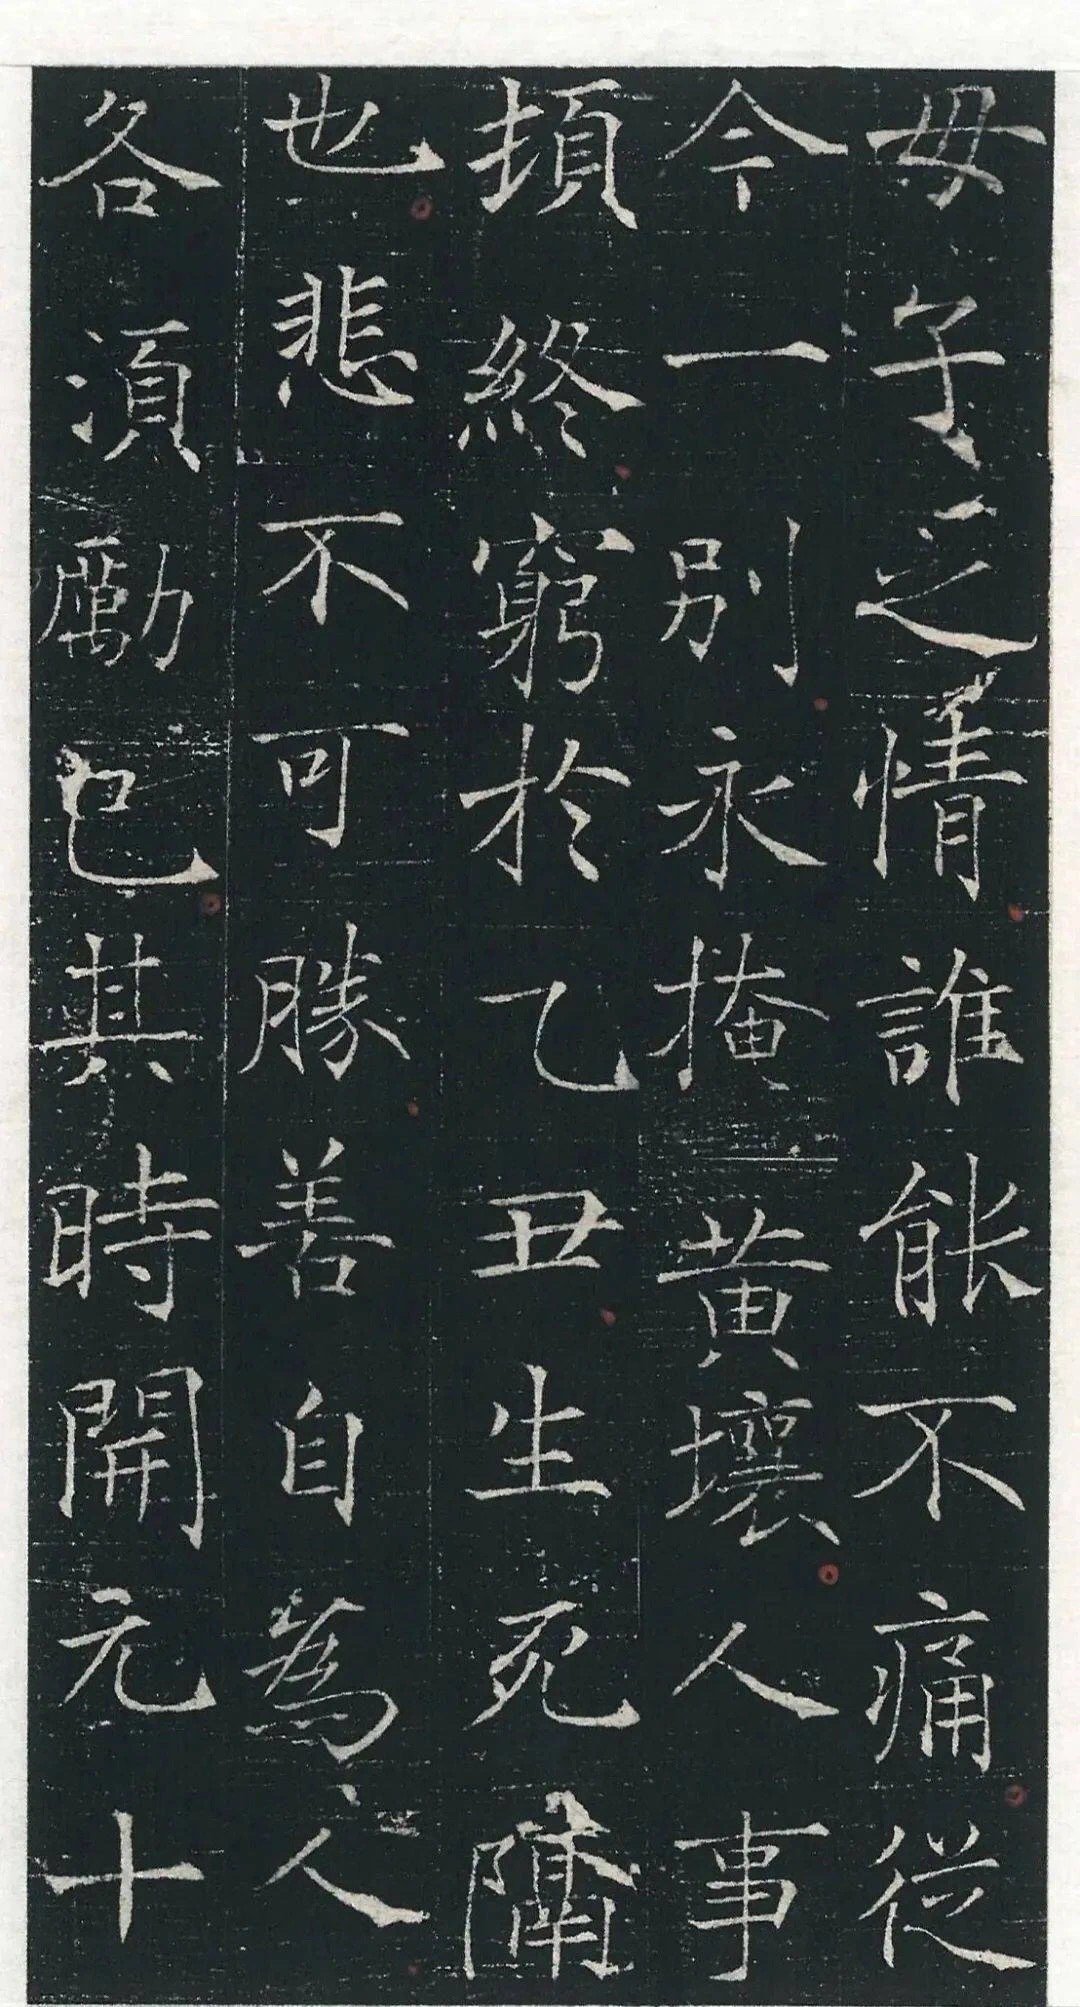 母子之情誰能不痛從
今一別永掩黄壤人事
頓終窮於乙丑生死隔
也悲不可勝善自為人
各須勵己其時開元十